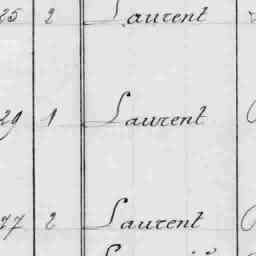 25 2 Laurent
29 1 Laurent
77 2 Laurent